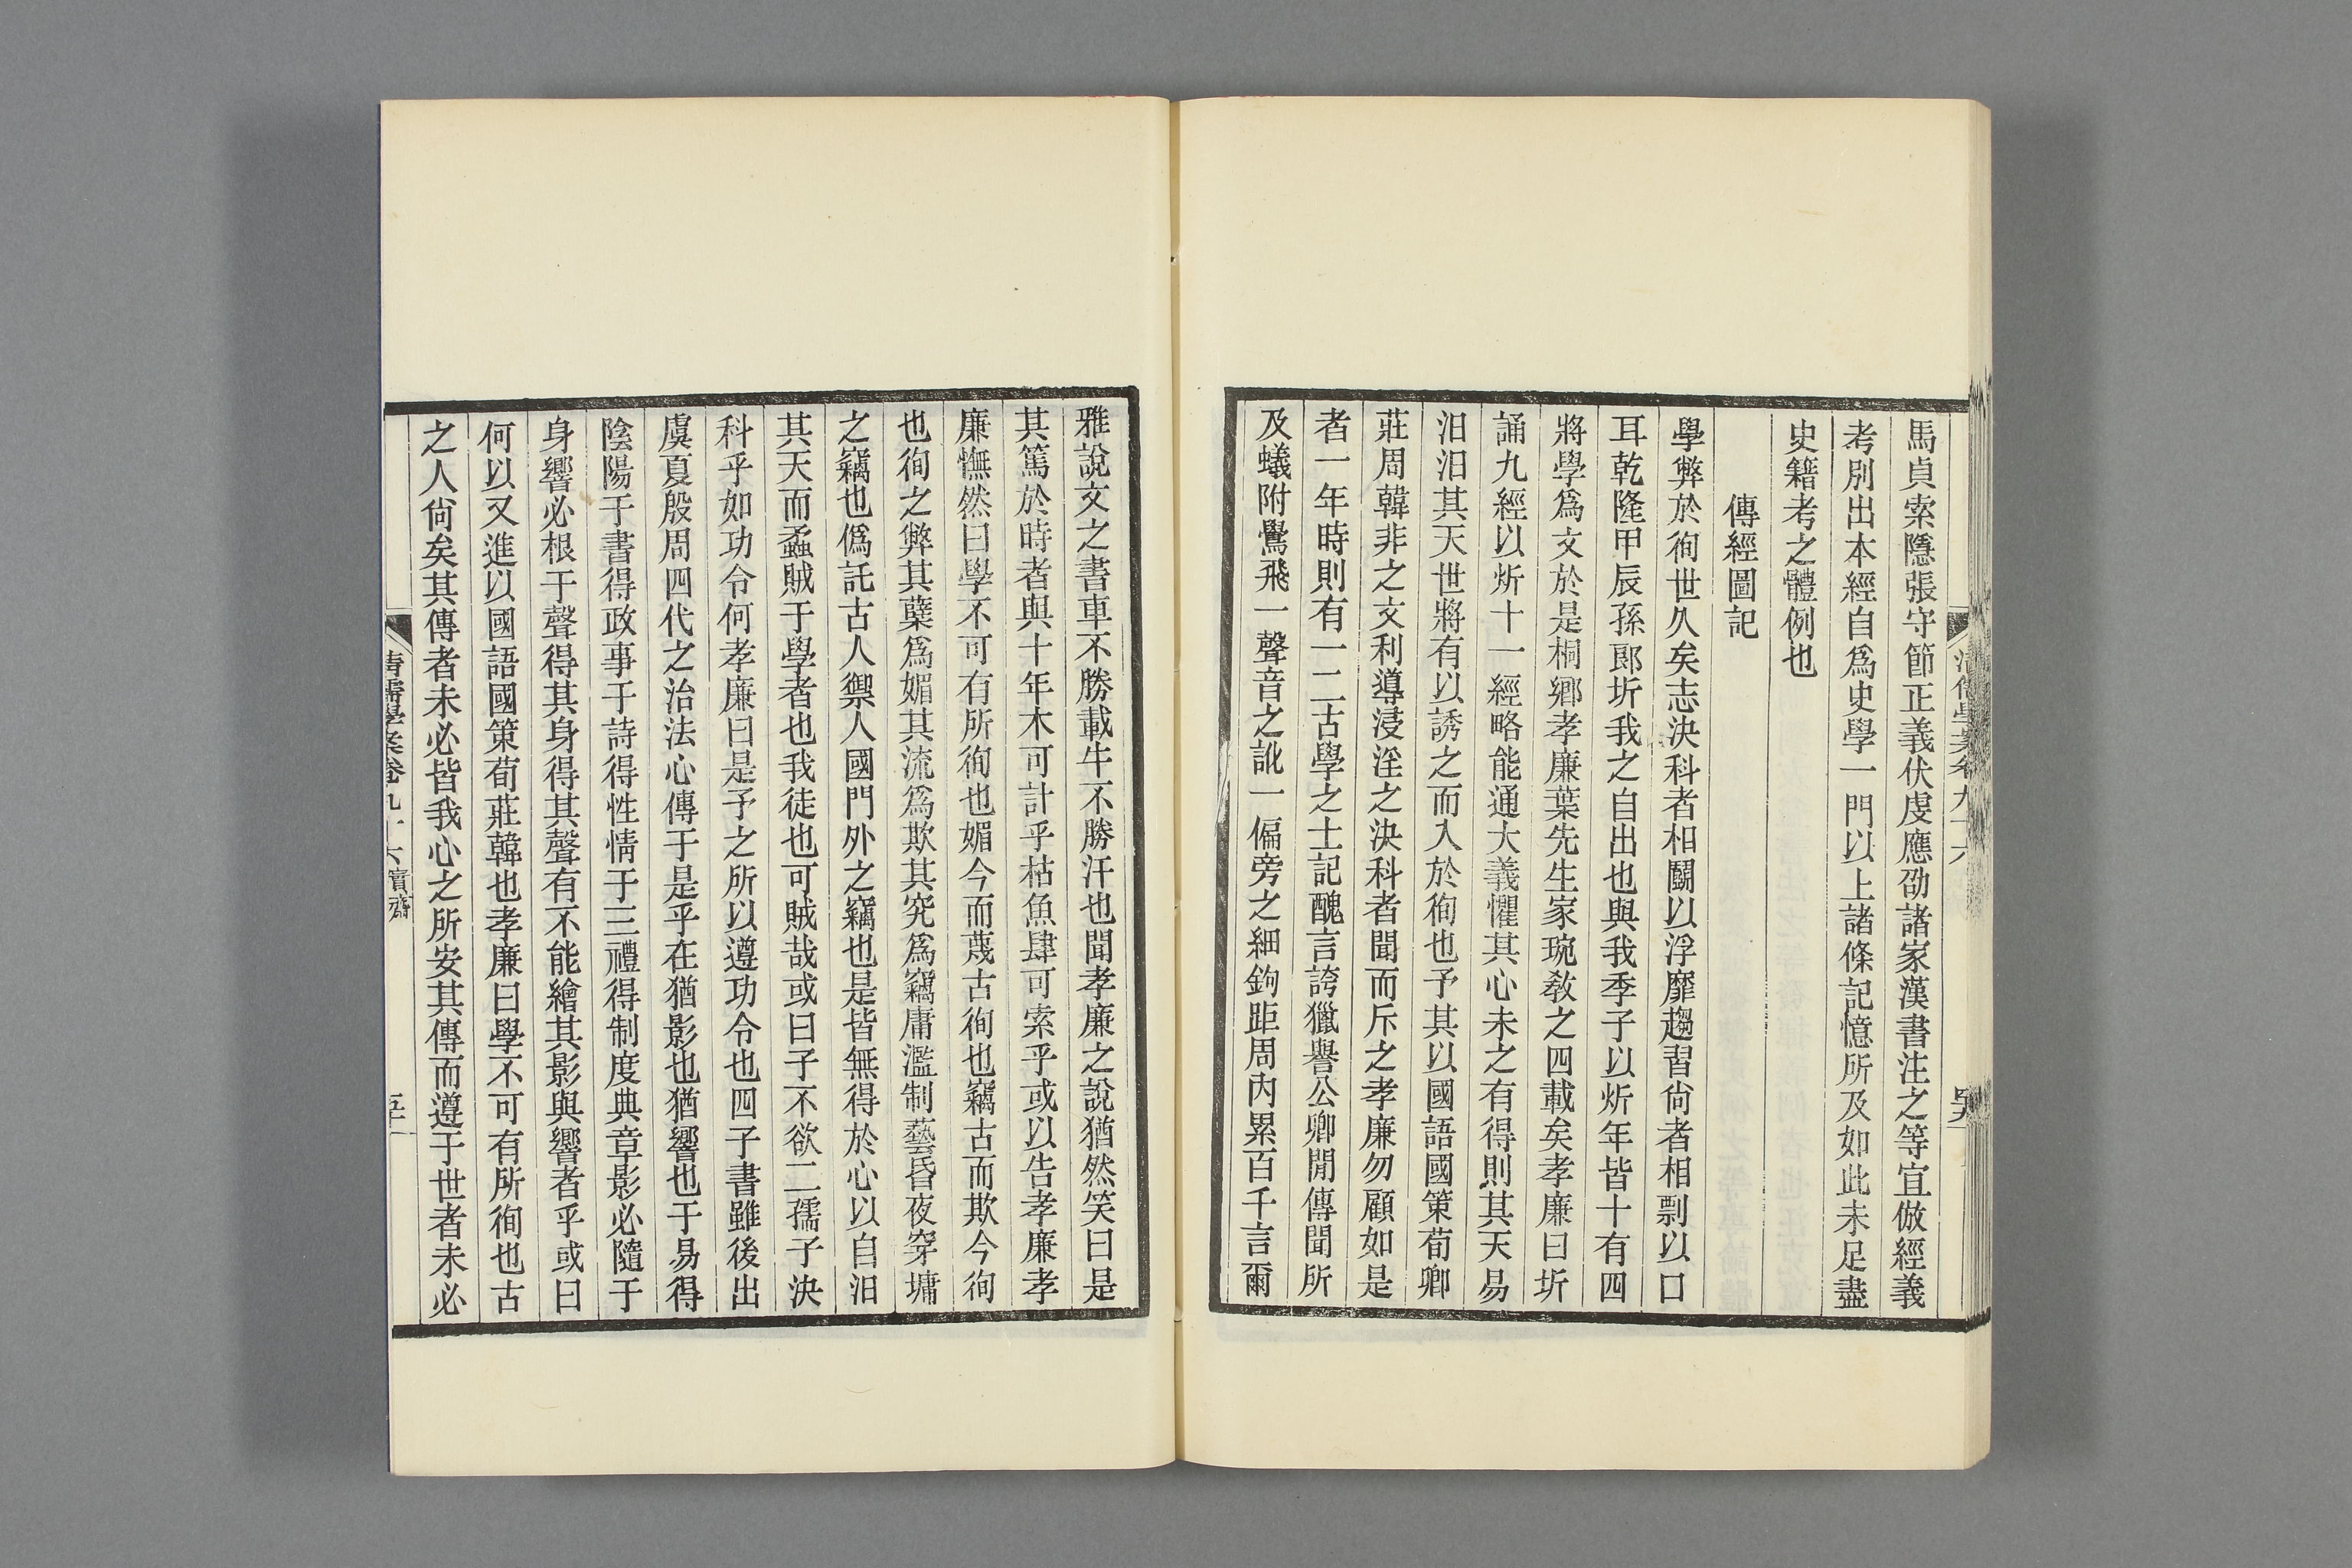 馬貞索隱張守節正義伏虔應劭諸家漢書注之等宜倣經義
考別出本經自爲史學一門以上諸條記憶所及如此未足盡
史籍考之體例也
傳經圖記
學弊於徇世久矣志決科者相鬭以浮靡趨習尙者相剽以口
耳乾隆甲辰孫郎圻我之自出也與我季子以炘年皆十有四
將學爲文於是桐鄉孝廉葉先生家琬敎之四載矣孝廉曰圻
誦九經以炘十一經略能通大義懼其心未之有得則其天易
汨汨其天世將有以誘之而入於徇也予其以國語國策荀卿
莊周韓非之文利導浸淫之決科者聞而斥之孝廉勿顧如是
者一年時則有一二古學之士記醜言誇獵譽公卿閒傳聞所
及蟻附鸒飛一聲音之訛一偏旁之細鉤距周內累百千言爾
雅說文之書車不勝載牛不勝汗也聞孝廉之說猶然笑曰是
其篤於時者與十年木可計乎枯魚肆可索乎或以告孝廉孝
廉憮然曰學不可有所徇也媚今而蔑古徇也竊古而欺今徇
也徇之弊其蘗爲媚其流爲欺其究爲竊庸濫制藝昏夜穿墉
之竊也僞託古人禦人國門外之竊也是皆無得於心以自汨
其天而蟊賊于學者也我徒也可賊哉或曰子不欲二孺子決
科乎如功令何孝廉曰是予之所以遵功令也四子書雖後出
虞夏殷周四代之治法心傳于是乎在猶影也猶響也于易得
陰陽于書得政事于詩得性情于三禮得制度典章影必隨于
身響必根于聲得其身得其聲有不能繪其影與響者乎或曰
何以又進以國語國策荀莊韓也孝廉曰學不可有所徇也古
之人尙矣其傳者未必皆我心之所安其傳而遵于世者未必
清儒學案卷九十六 實齋